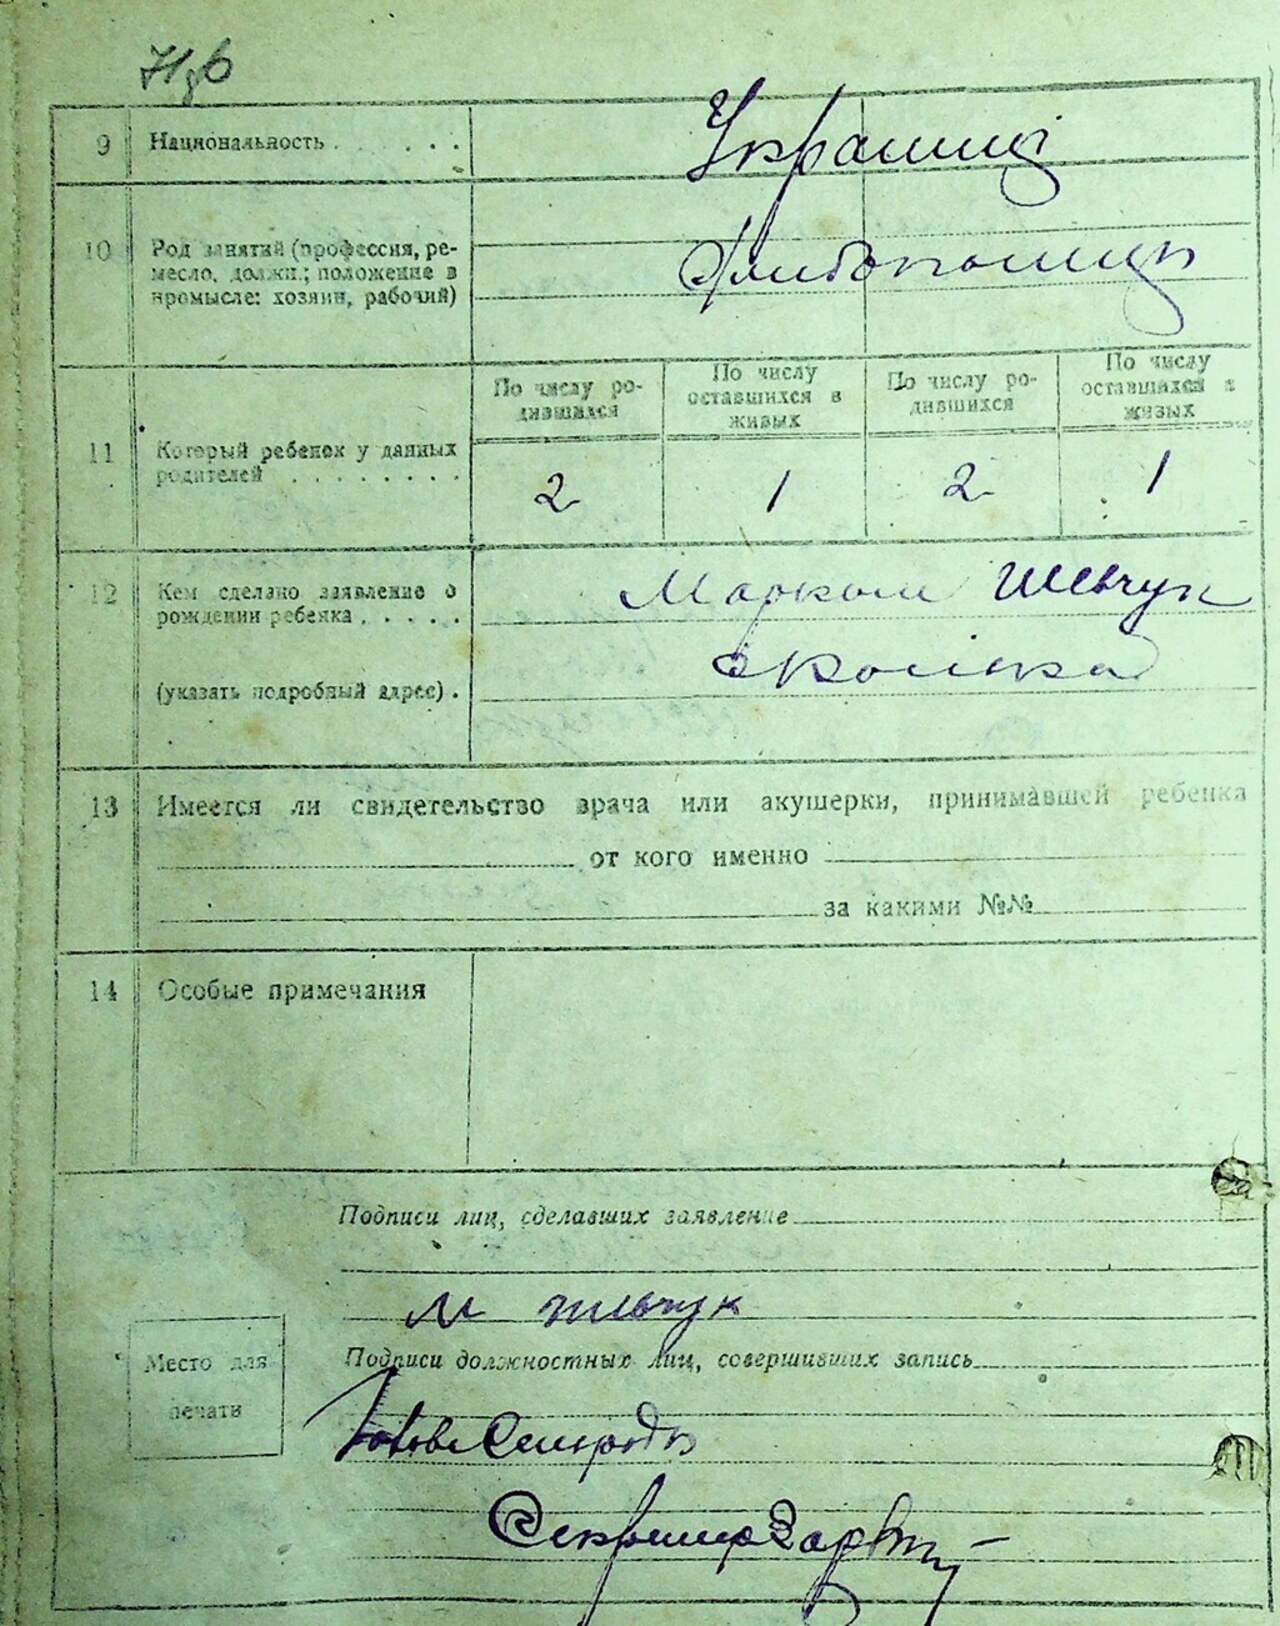 9 Национальность . . . . . . Українці
10 Род занятий (профессия, ре-
месло, должн.; положение в
промысле: хозяин, рабочий)
По числу ро-
дившихся
По числу
оставшихся в
живых
По числу ро-
дившихся
По числу
оставшихся в
живых
11 Который ребенок у данных
родителей . . . . . . . .
2 1 2 1
12 Кем сделано заявление о
рождении ребенка . . . . .
Марком Шевчук
(указать подробный адрес) .
13 Имеется ли свидетельство врача или акушерки, принимавшей ребенка
от кого именно
за какими №№
14 Особые примечания
Подписи лиц, сделавших заявление
М Шевчук
Место для
печати
Подписи должностных лиц, совершивших запись
Голова Сільради
Секретар